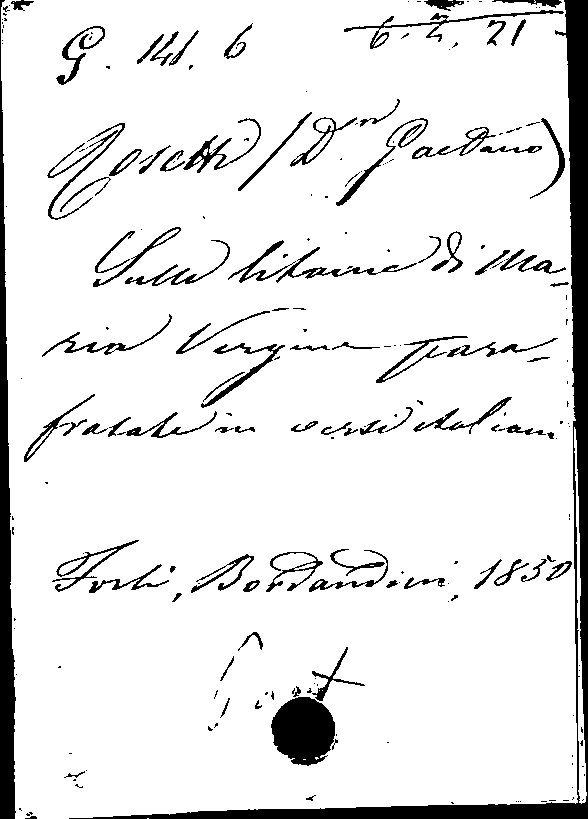 G. 141. 6 6. 2. 21
Rosetti (Dn Gaetano)
Sulle litanie di Ma-
ria Vergine para-
fratate in versi italiani
Forlì, Bordandini, 1850